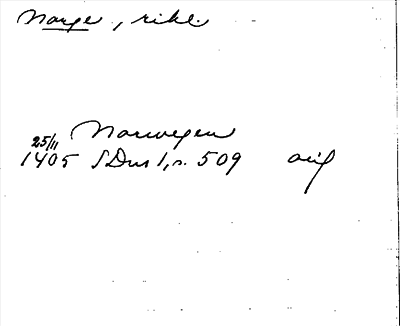 Norge, rike.
Norwegen
25/11
1405 SDns 1, s. 509 orig